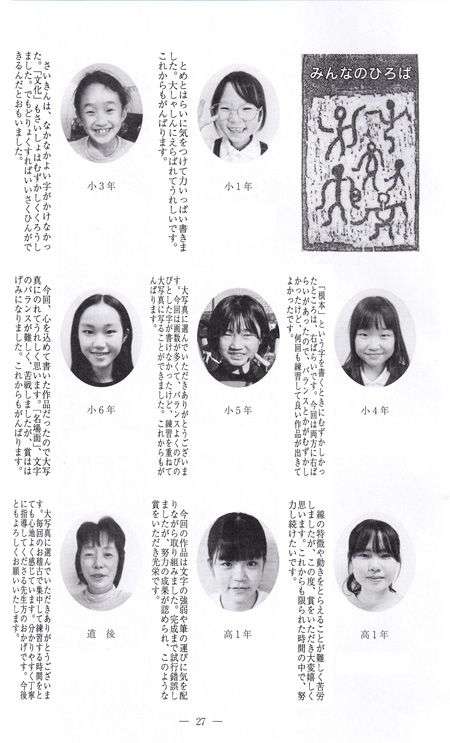 みんなのひろば
とめとはらいに気をつけて力いっぱい書きま
した。大しゃしんにえらばれてうれしいです。
これからもがんばります。
小1年
さいきんは、なかなかよい字がかけなかっ
た。「文化」もさいしょはむずかしくくろうし
ました。でもどりょくすればいいさくひんがで
きるんだとおもいました。
小3年
「根本」という字を書くときにむずかしかっ
たところは、右ばらいです。今回は両方に右ば
らいがあったので、バランスとかがむずかし
かったけど、何回も練習して良い作品が出きて
よかったです。
小4年
大写真に選んでいただきありがとうございま
す。今回は画数が多くて、バランスよくのびの
びとした字が書けなかったけど、練習を重ねて
大写真に写ることができました。これからもが
んばります。
小5年
今回、心を込めて書いた作品だったので大写
真にのれてうれしく思います。「名場面」、文字
のバランスが難しく、苦戦しましたが、賞はは
げみになりました。これからもがんばります。
小6年
線の特徴や動きをとらえることが難しく苦労
しましたが、この度、賞をいただき大変嬉しく
思います。これからも限られた時間の中で、努
力し続けたいです。
高1年
今回の作品は文字の強弱や筆の運びに気を配
りながら取り組みました。完成まで試行錯誤し
ましたが、努力の成果が認められ、このような
賞をいただき光栄です。
高1年
大写真に選んでいただきありがとうございま
す。毎回のお稽古で集中して練習する時間をと
ても心地よく感じています。分かりやすく丁寧
に指導してくださる先生方のおかげです。今後
ともよろしくお願いいたします。
道後
— 27 —